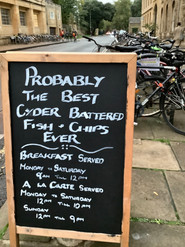 Probably
The Best
Cyder Battered
Fish + Chips
Ever
Breakfast Served
Monday to Saturday
9am Till 12pm
A la Carte Served
Monday to Saturday
12pm Till 10pm
Sunday
12pm Till 9pm